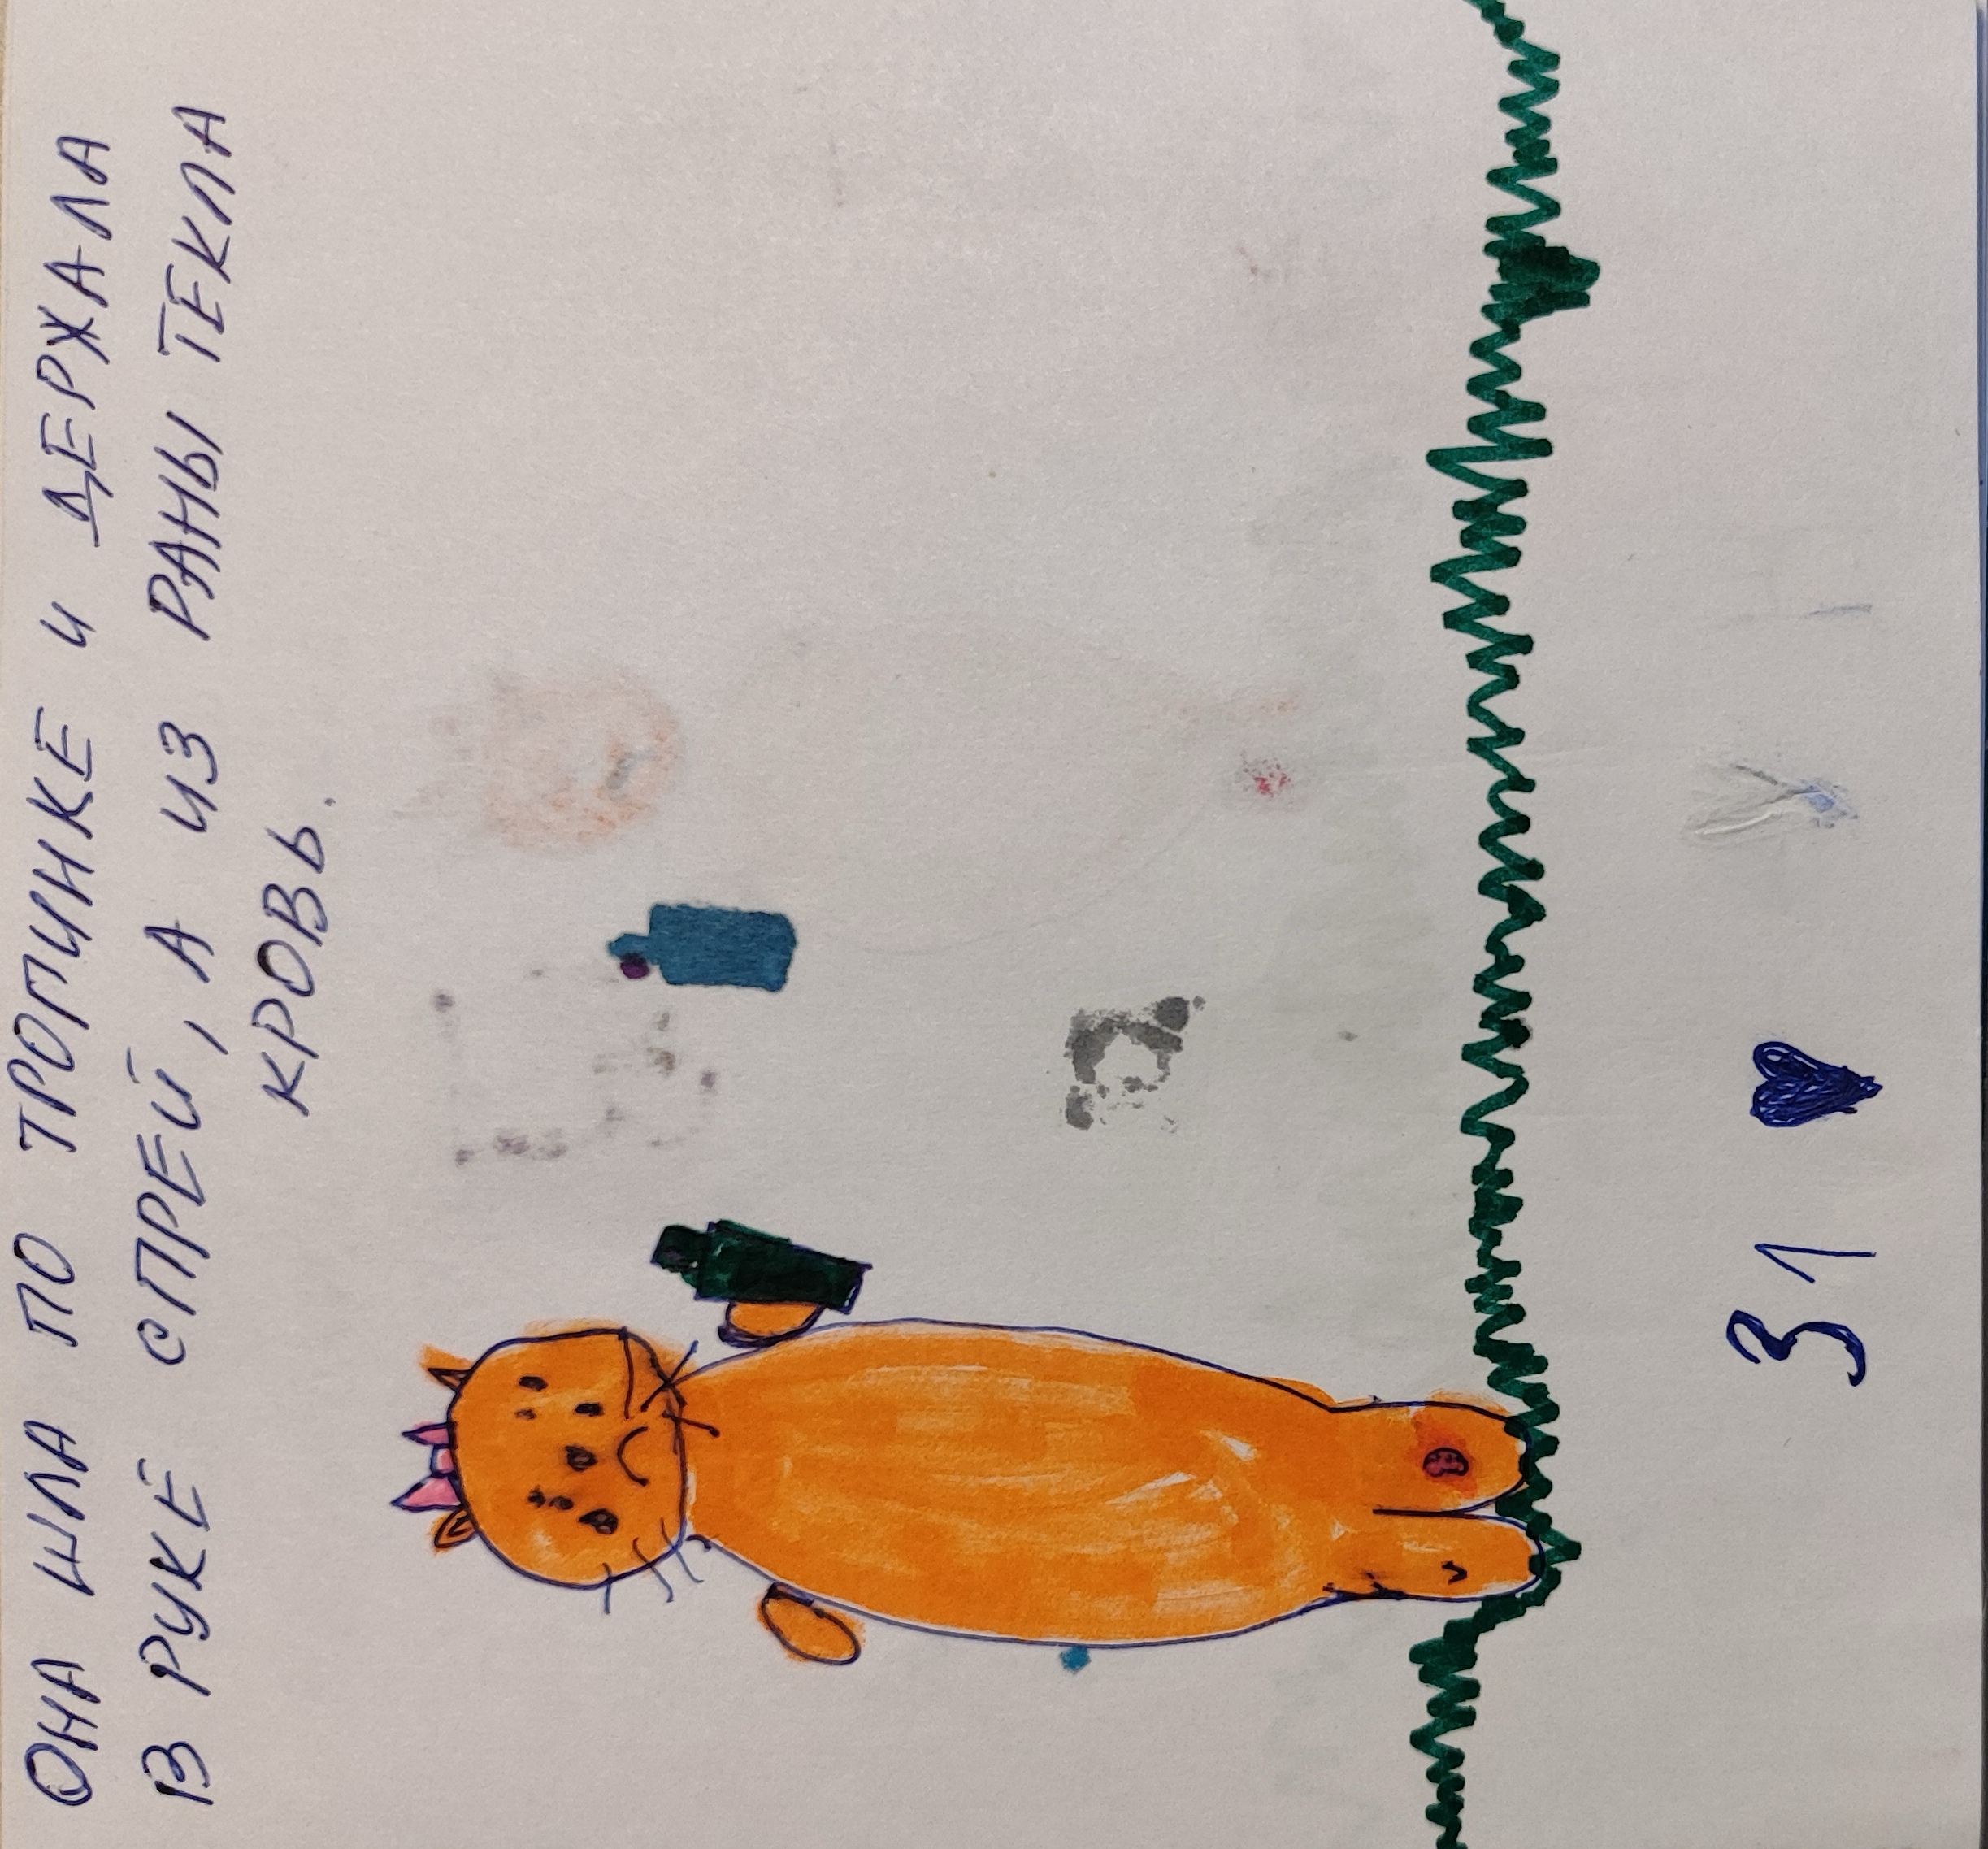 ОНА ШЛА ПО ТРОПИНКЕ И ДЕРЖАЛА
В РУКЕ СПРЕЙ, А ИЗ РАНЫ ТЕКЛА
КРОВЬ.
31